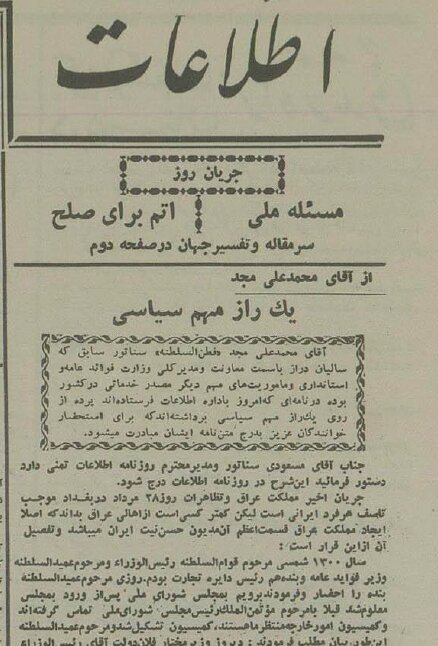 اطلاعات
جریان روز
مسئله ملی
اتم برای صلح
سرمقاله و تفسیر جهان در صفحه دوم
از آقای محمدعلی مجد
یك راز مهم سیاسی
آقای محمدعلی مجد «فطن‌السلطنه» سناتور سابق که
سالیان دراز باسمت معاونت ومدیرکلی وزارت فوائد عامه‌و
استانداری وماموریت‌های مهم دیگر مصدر خدماتی درکشور
بوده درنامه‌ای که‌امروز باداره اطلاعات فرستاده‌اند پرده از
روی یك‌راز مهم سیاسی برداشته‌اندکه برای استحضار
خوانندگان عزیز بدرج متن‌نامه ایشان مبادرت میشود.
جناب آقای مسعودی سناتور ومدیرمحترم روزنامه اطلاعات تمنی دارد
دستور فرمائید این‌شرح در روزنامه اطلاعات درج شود.
جریان اخیر مملکت عراق وتظاهرات روز۲۸ مرداد دربغداد موجب
تاسف هرفرد ایرانی است لیکن کمتر کسی‌است ازاهالی عراق بداندکه اصلا
ایجاد مملکت عراق قسمت‌اعظم آن‌مدیون حسن‌نیت ایران میباشد وتفصیل
آن ازاین قرار است :
سال ۱۳۰۰ شمسی مرحوم قوام‌السلطنه رئیس‌الوزراء ومرحوم‌عمیدالسلطنه
وزیر فواید عامه وبنده‌هم رئیس دایره تجارت بودم.روزی مرحوم‌عمیدالسلطنه
بنده را احضار وفرمودندبرویم بمجلس شورای ملی .پس‌از ورود بمجلس
معلوم‌شد قبلا بامرحوم مؤتمن‌الملك‌رئیس‌مجلس شورای‌ملی تماس گرفته‌اند
وکمیسیون امورخارجه‌منتظرماهستند،کمیسیون تشکیل‌شدومرحوم‌عمیدالسلطنه
این‌طور بیان مطلب فرمودند : دیروز وزیرمختار فلان‌دولت آقای رئیس‌الوزراء